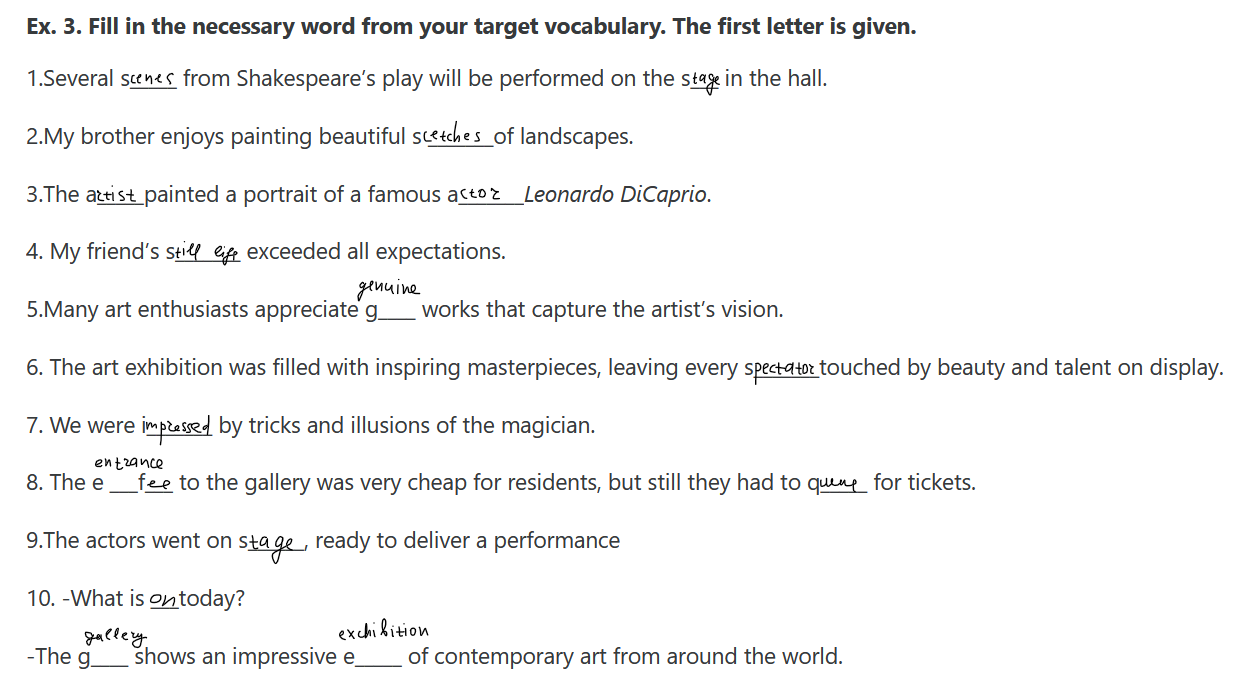 Ex. 3. Fill in the necessary word from your target vocabulary. The first letter is given.
1.Several scenes from Shakespeare's play will be performed on the stage in the hall.
2.My brother enjoys painting beautiful scetches of landscapes.
3.The artist painted a portrait of a famous actor Leonardo DiCaprio.
4. My friend's still life exceeded all expectations.
genuine
5.Many art enthusiasts appreciate g___ works that capture the artist's vision.
6. The art exhibition was filled with inspiring masterpieces, leaving every spectator touched by beauty and talent on display.
7. We were impressed by tricks and illusions of the magician.
entrance
8. The e __fee to the gallery was very cheap for residents, but still they had to queue for tickets.
9.The actors went on stage, ready to deliver a performance
10. -What is on today?
gallery exchibition
-The g___ shows an impressive e____ of contemporary art from around the world.